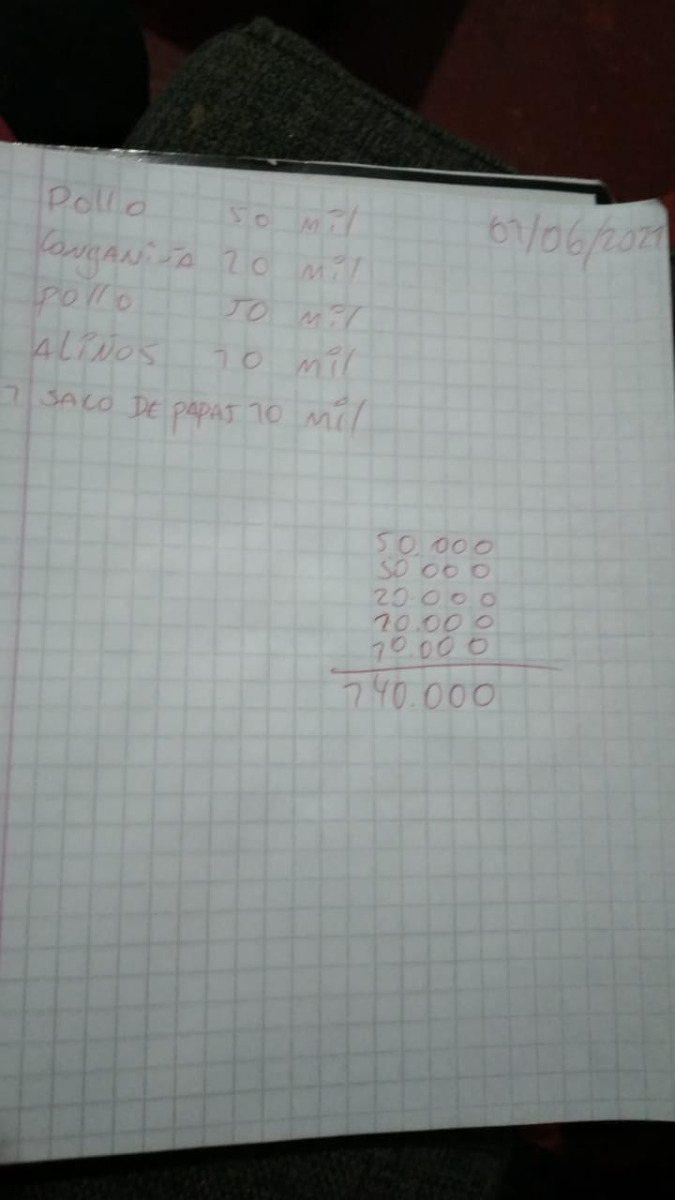 Pollo 50 mil
07/06/2021
Longanisa 20 mil
Pollo 50 mil
ALIÑOS 10 mil
1 SACO DE PAPAS 10 mil
50.000
50.000
20.000
10.000
10.000
140.000